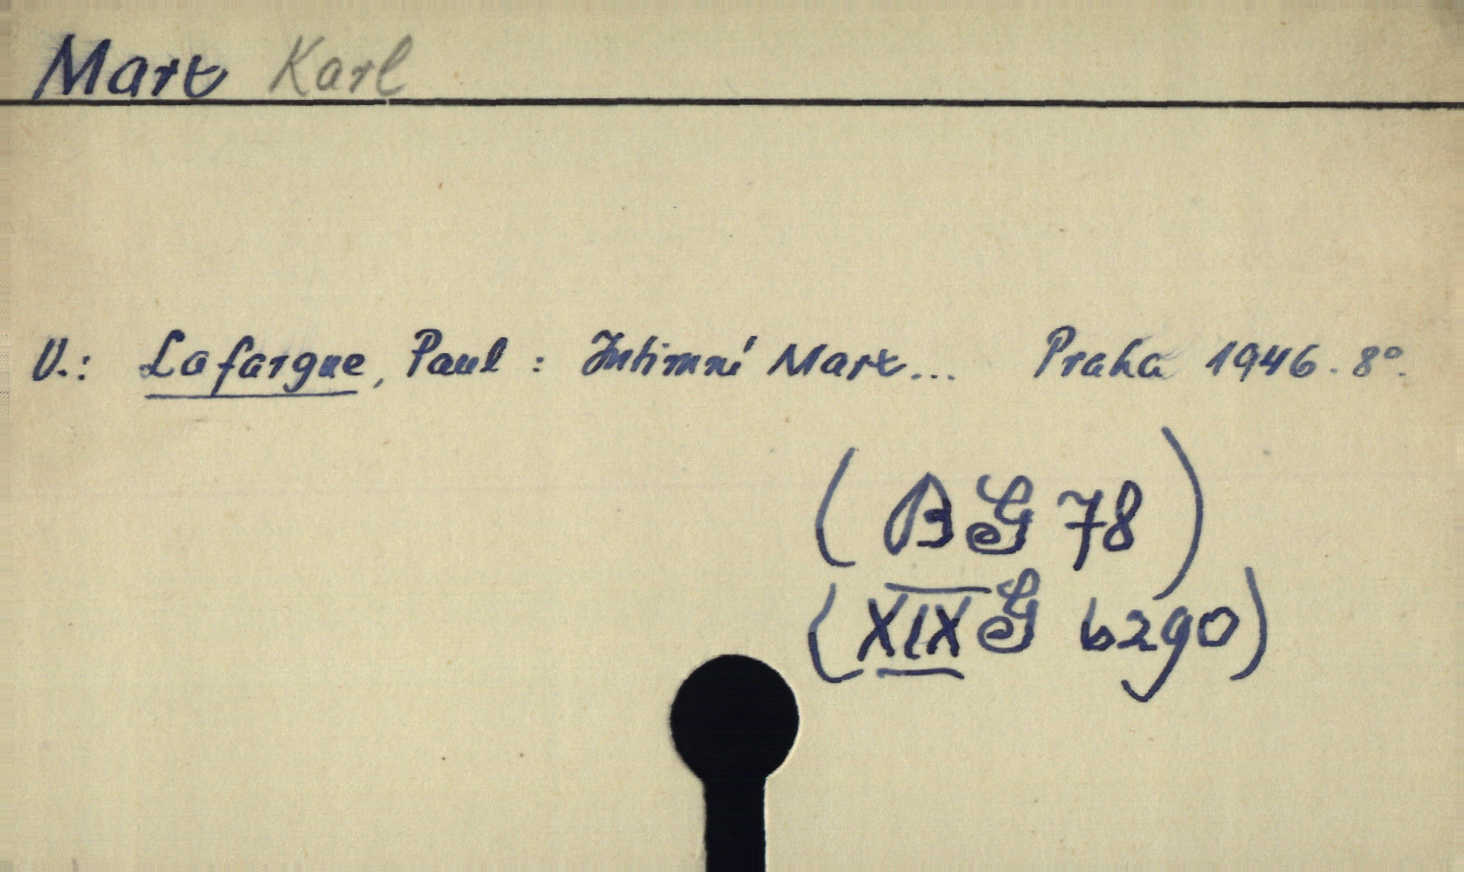 Marx Karl
V.: Lafargue, Paul : Intimní Marx... Praha 1946. 8°.
(BG 78)
(XIX G b290)